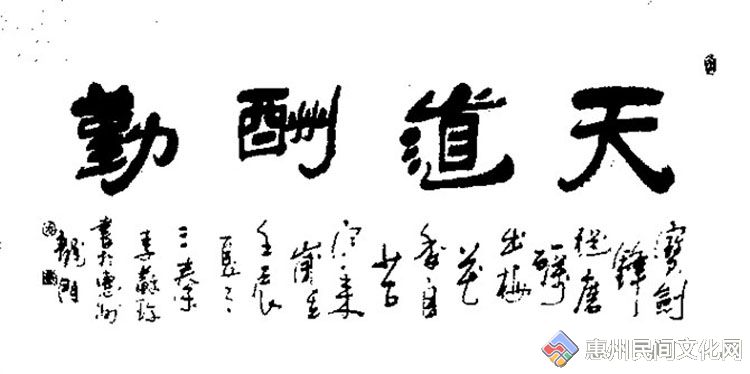 天道酬勤
寶劍
鋒
從磨
礪
出梅
花
香自
苦
寒来
歲在
壬辰
夏
三秦
書於惠州
龍門
惠州民间文化网